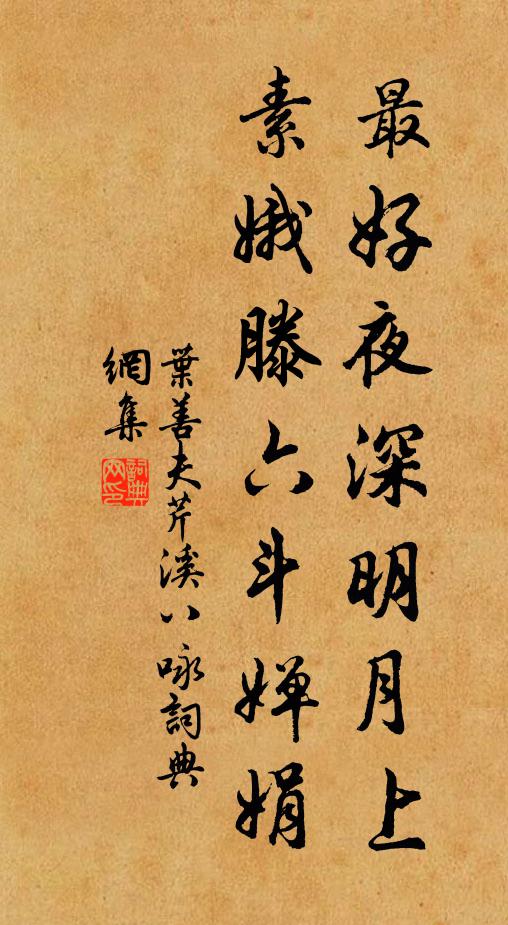 最好夜深明月上
素娥滕六斗婵娟
葉善夫芹溪八咏詞典
網集
詞典网印